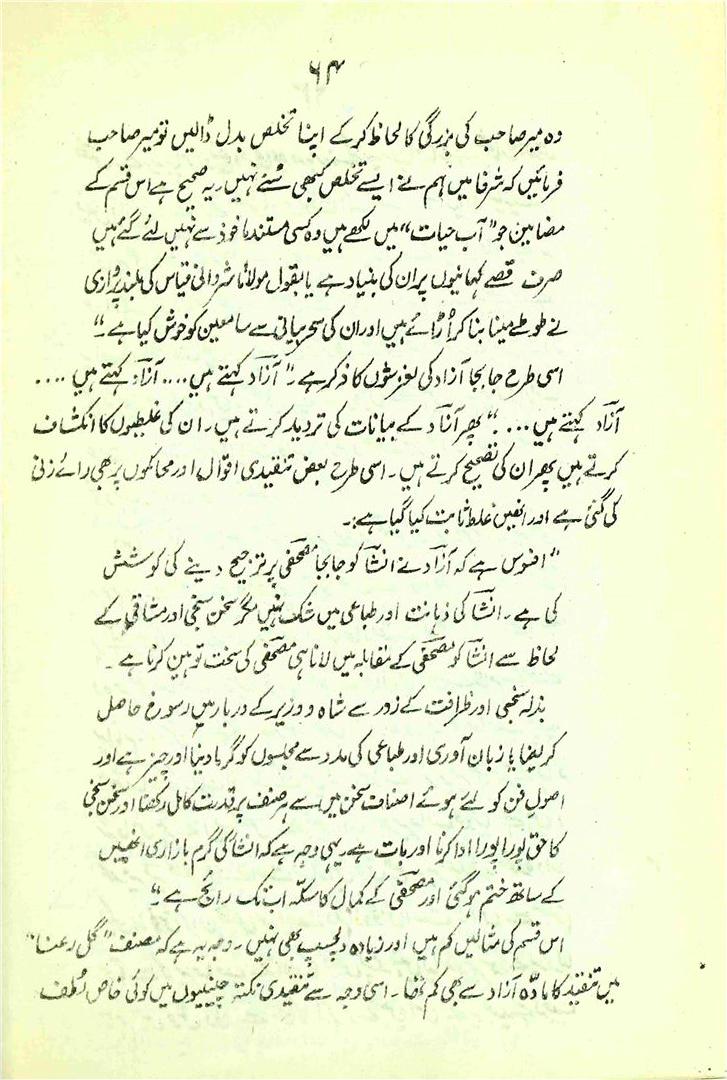 ۶۴
وہ میر صاحب کی بزرگی کا لحاظ کر کے اپنا تخلص بدل ڈالیں تو میر صاحب
فرمائیں کہ شرفا میں ہم نے ایسے تخلص کبھی سُنے نہیں۔ یہ صحیح ہے اس قسم کے
مضامین جو "آب حیات" میں لکھے ہیں وہ کسی مستند ماخوذ سے نہیں لئے گئے ہیں
صرف قصے کہانیوں پر ان کی بنیاد ہے یا بقول مولانا شروانی قیاس کی بلند پروازی
نے طوطے مینا بنا کر اُڑائے ہیں اور ان کی سحر بیانی سے سامعین کو خوش کیا ہے۔"
اسی طرح جابجا آزاد کی لغزشوں کا ذکر ہے۔ "آزاد کہتے ہیں .... آزاد کہتے ہیں ....
آزاد کہتے ہیں ...." پھر آزاد کے بیانات کی تردید کرتے ہیں۔ ان کی غلطیوں کا انکشاف
کرتے ہیں پھر ان کی تصحیح کرتے ہیں۔ اسی طرح بعض تنقیدی اقوال اور محاکموں پر بھی رائے زنی
کی گئی ہے اور انھیں غلط ثابت کیا گیا ہے:۔
"افسوس ہے کہ آزاد نے انشا کو جابجا مصحفی پر ترجیح دینے کی کوشش
کی ہے۔ انشا کی ذہانت اور طباعی میں شک نہیں مگر سخن سنجی اور مشاقی کے
لحاظ سے انشا کو مصحفی کے مقابلہ میں لانا ہی مصحفی کی سخت توہین کرنا ہے۔
بذلہ سنجی اور ظرافت کے زور سے شاہ و وزیر کے دربار میں رسوخ حاصل
کر لینا یا زبان آوری اور طباعی کی مدد سے مجلسوں کو گرما دینا اور چیز ہے اور
اصولِ فن کو لئے ہوئے اصناف سخن میں سے ہر صنف پر قدرت کامل رکھنا اور سخن سنجی
کا حق پورا پورا ادا کرنا اور بات ہے۔ یہی وجہ ہے کہ انشا کی گرم بازاری انھیں
کے ساتھ ختم ہو گئی اور مصحفی کے کمال کا سکہ اب تک رائج ہے۔"
اس قسم کی مثالیں کم ہیں اور زیادہ دلچسپ بھی نہیں۔ وجہ یہ ہے کہ مصنف "گل رعنا"
میں تنقید کا مادّہ آزاد سے بھی کم تھا۔ اسی وجہ سے تنقیدی نکتہ چینیوں میں کوئی خاص لُطف